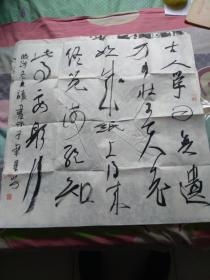 古人学问无遗
力少壮工夫老
始成纸上得来
终觉浅绝知
此事要躬行